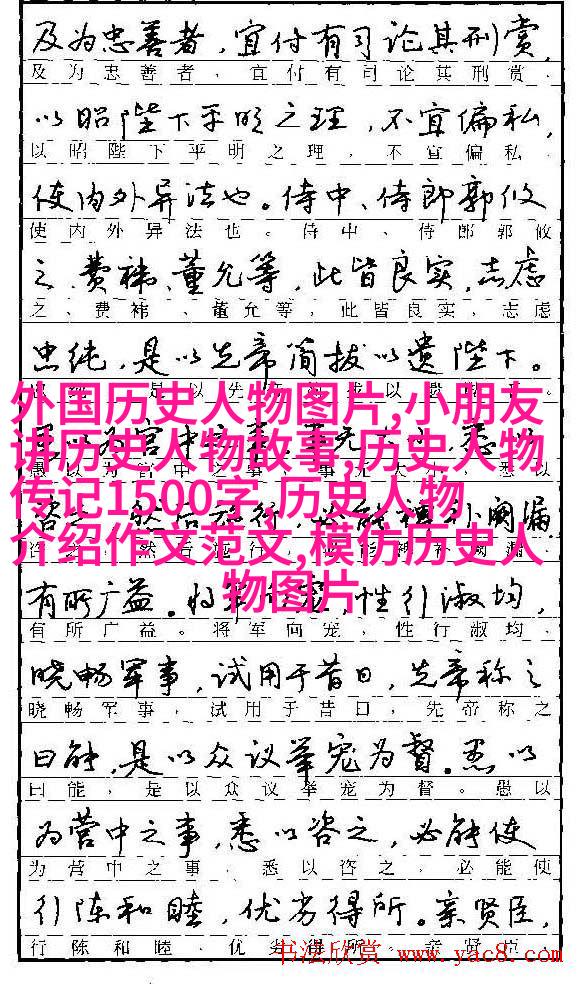 及为忠善者，宜付有司论其刑赏，
及为忠善者，宜付有司论其刑赏，
以昭陛下平明之理，不宜偏私，
以昭陛下平明之理，不宜偏私，
使内外异法也。侍中、侍郎郭攸
使内外异法也。侍中、侍郎郭攸
之、费祎、董允等，此皆良实，志虑
之、费祎、董允等，此皆良实，志虑
忠纯，是以先帝简拔以遗陛下。
外国历史人物图片,小朋友
讲历史人物故事,历史人物
传记1500字,历史人物
介绍作文范文,模仿历史人
物图片
愚以为宫中之事，事无大小，悉以
阙漏
有所广益。将军向宠，性行淑均，
有所广益。将军向宠，性行淑均，
晓畅军事，试用于昔日，先帝称之
晓畅军事，试用于昔日，先帝称之
曰能，是以众议举宠为督。愚以
曰能，是以众议举宠为督。愚以
为营中之事，悉以咨之，必能使
为营中之事，悉以咨之，必能使
行陈和睦，优劣得所。亲贤臣，
行陈和睦，优劣得所。亲贤臣，
书法欣赏 www.yac8.com